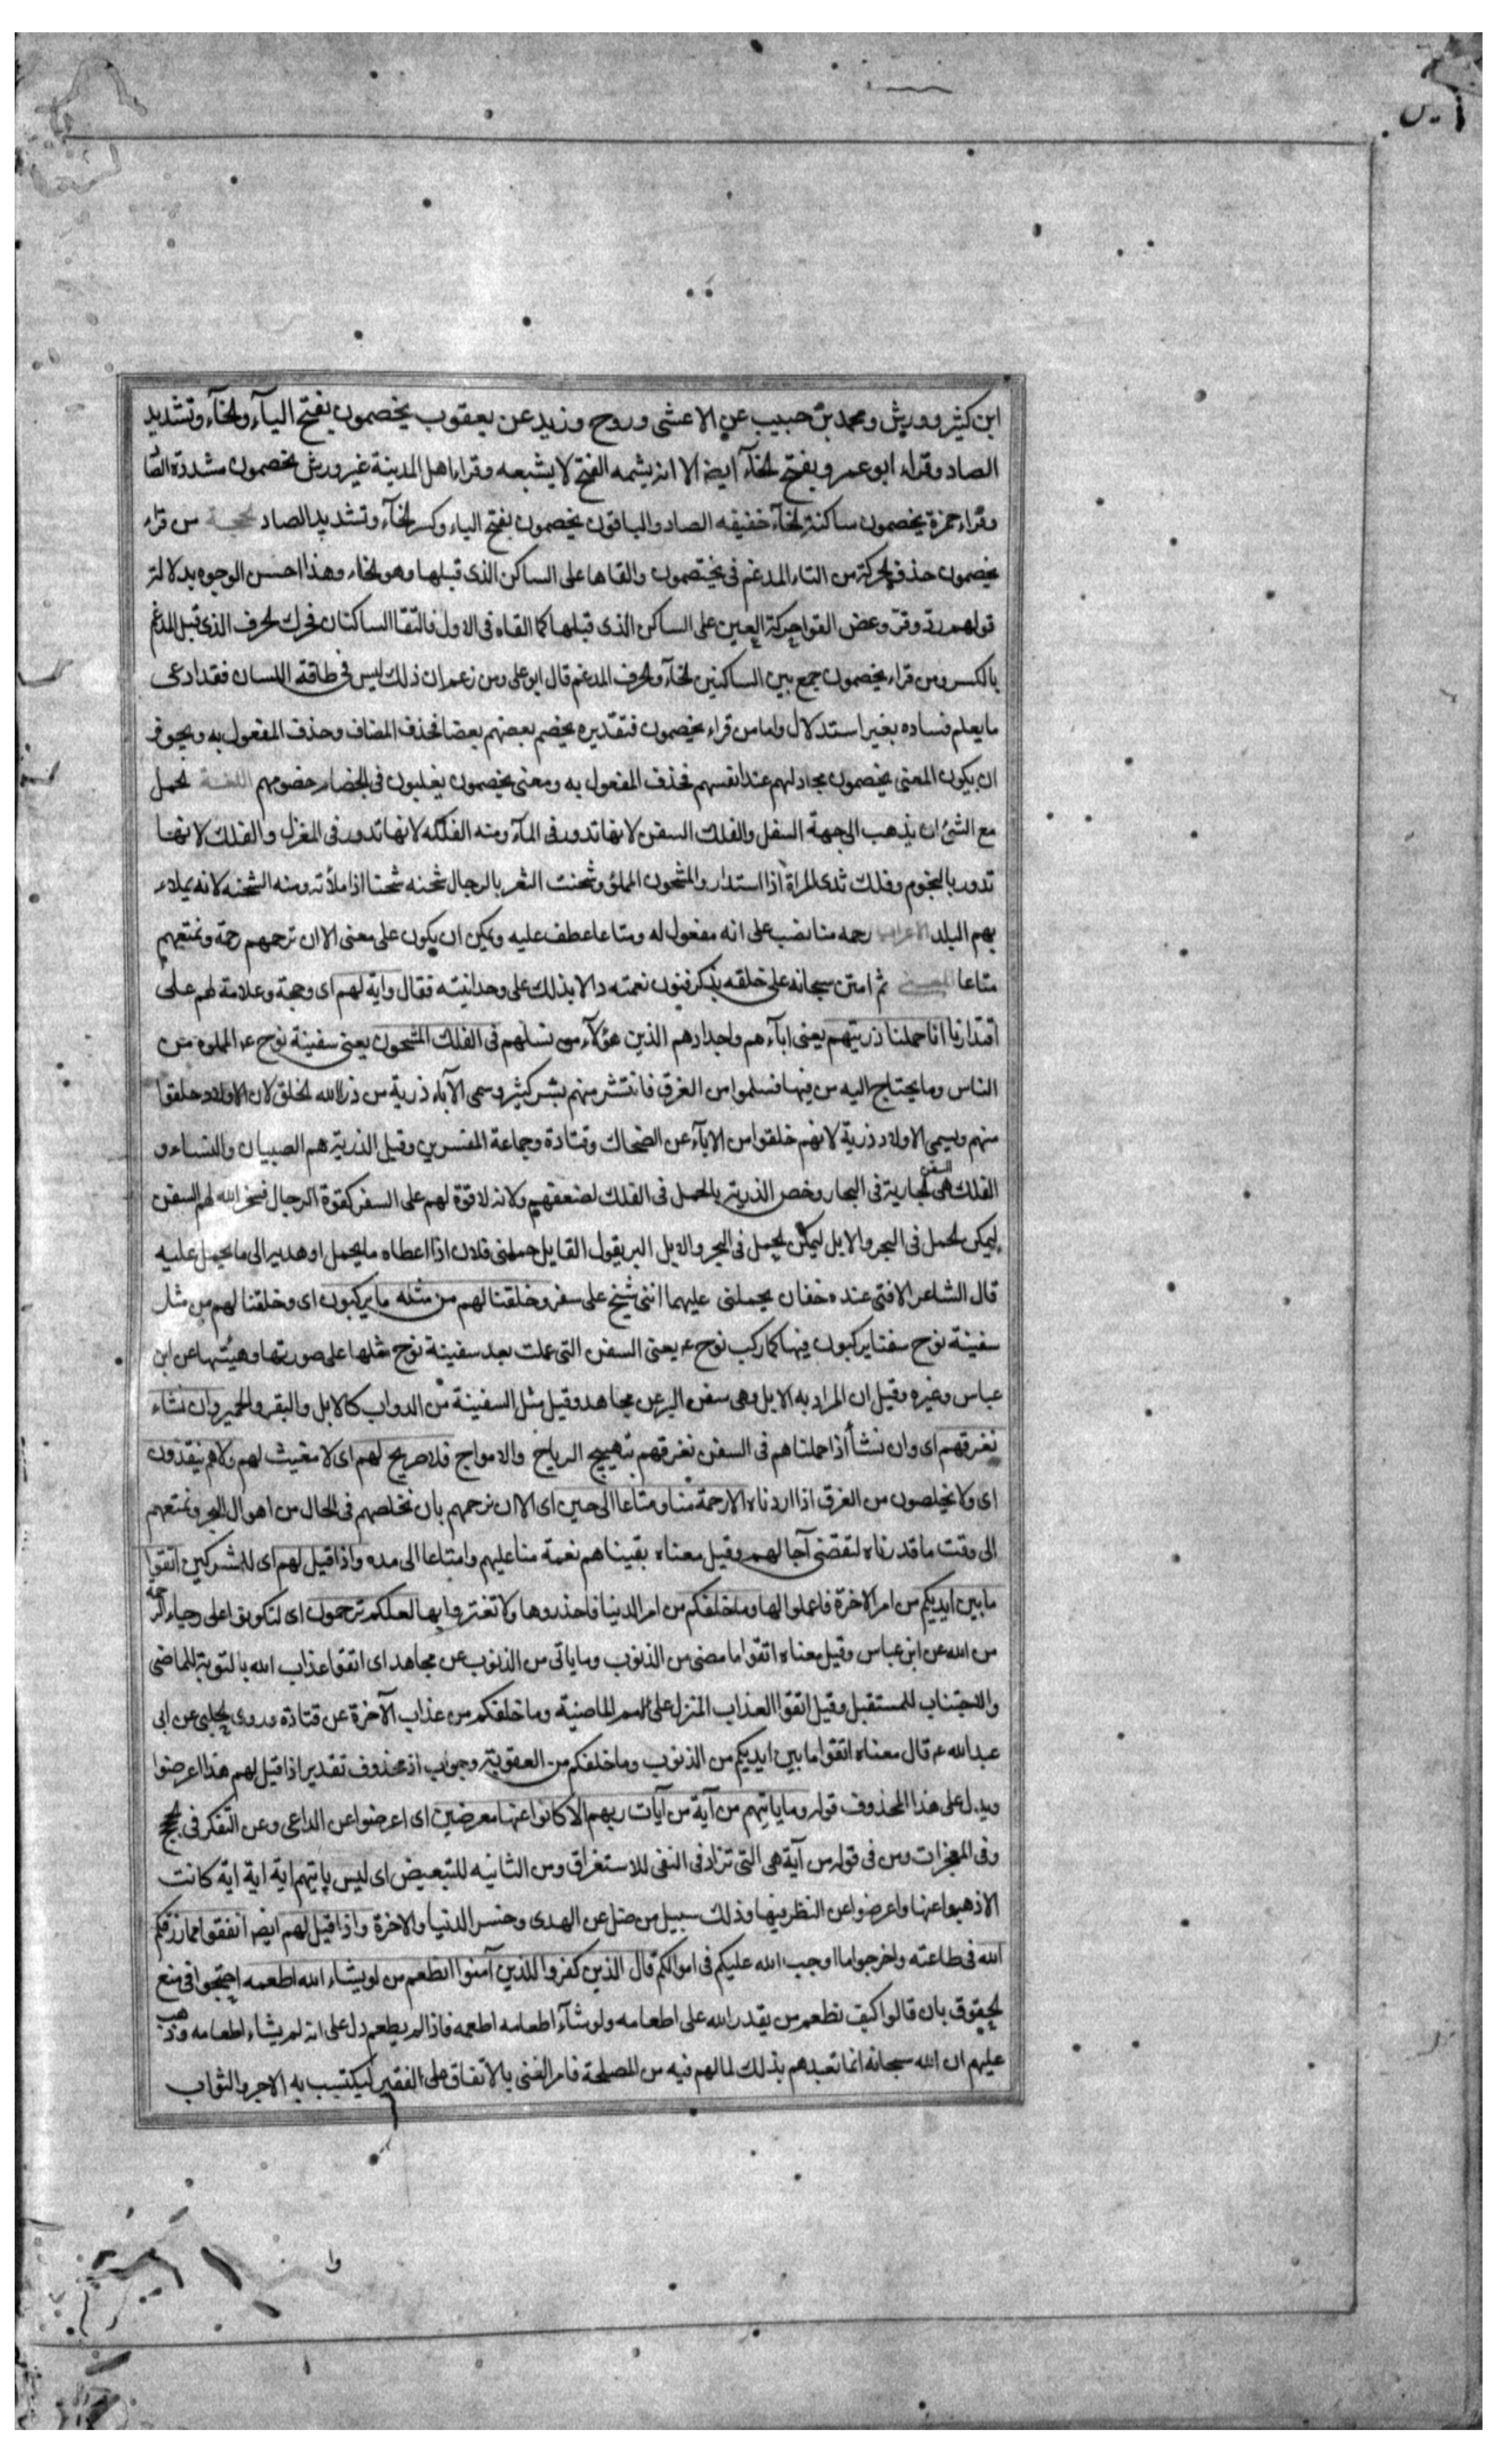 يس
ابن كثير وورش ومحمد بن حبيب عن الاعشى وروح وزيد عن يعقوب يخصمون بفتح اليآء والخآء وتشديد
الصاد وقراء ابو عمرو بفتح الخآء ايضا الا انه يشمه الفتح لا يشبعه وقراء اهل المدينة غير ورش يخصمون مشددة الصا
وقراء حمزة يخصمون ساكنة الخآء خفيفه الصاد والباقون يخصمون بفتح الياء وكسر الخآء وتشديد الصاد الحجة من قراء
يخصمون حذف الحركة من التاء المدغم في يختصمون والقاها على الساكن الذى قبلها وهو الخاء وهذا احسن الوجوه بدلالة
قولهم رد وفر وعض القوا حركة العين على الساكن الذى قبلها كما القاه فى الاول فالتقا الساكنان فحرك الحرف الذى قبل المدغم
بالكسر ومن قراء يخصمون جمع بين الساكنين الخآء والحرف المدغم قال ابو على ومن زعم ان ذلك ليس فى طاقة اللسان فقد ادعى
ما يعلم فساده بغير استدلال واما من قراء يخصمون فتقديره يخصم بعضهم بعضا فحذف المضاف وحذف المفعول به ويجوز
ان يكون المعنى يخصمون مجادلهم عند انفسهم فحذف المفعول به ومعنى يخصمون يغلبون فى الخصام خصومهم اللغة الحمل
مع الشئ ان يذهب الى جهة السفل والفلك السفن لانها تدور فى المآء ومنه الفلكه لانها تدور فى المغزل والفلك لانها
تدور بالنجوم وفلك ثدى المراة اذا استدار والمشحون المملؤ وشحنت الثغر بالرجال شحنه شحنا اذا ملأته ومنه الشحنه لانه يملاء
بهم البلد الاعراب رحمه منا نصب على انه مفعول له ومتاعا عطف عليه ويمكن ان يكون على معنى الا ان نرحمهم رحمة ونمتعهم
متاعا المعنى ثم امتن سبحانه على خلقه بذكر فنون نعمته دالا بذلك على وحدانيته فقال واية لهم اى وحجة وعلامة لهم على
اقتدارنا انا حملنا ذريتهم يعنى ابآءهم واجدادهم الذين هؤلآء من نسلهم فى الفلك المشحون يعنى سفينة نوح ع المملوه من
الناس وما يحتاج اليه من فيها فسلموا من الغرق فانتشر منهم بشر كثير وسمى الآباء ذرية من ذرا الله الخلق لان الاولاد خلقوا
منهم ويسمى الاولاد ذرية لانهم خلقوا من الابآء عن الضحاك وقتادة وجماعة المفسرين وقيل الذرية هم الصبيان والنساء و
الفلك هى السفن الجارية فى البحار وخص الذرية بالحمل فى الفلك لضعفهم ولانه لا قوة لهم على السفر كقوة الرجال فسخر الله لهم السفن
ليمكن الحمل فى البحر والابل ليمكن الحمل فى البحر والابل البر يقول القايل حملنى فلان اذا اعطاه ما يحمل او هديه الى ما يحمل عليه
قال الشاعر الافتى عنده خفان يحملنى عليهما اننى شيخ على سفر وخلقنا لهم من مثله ما يركبون اى وخلقنا لهم من مثل
سفينة نوح سفنا يركبون فيها كما ركب نوح ع يعنى السفن التى عملت بعد سفينة نوح مثلها على صورتها وهيئتها عن ابن
عباس وغيره وقيل ان المراد به الابل وهى سفن البر عن مجاهد وقيل مثل السفينة من الدواب كالابل والبقر والحمير وان نشاء
نغرقهم اى وان نشأ اذا حملناهم فى السفن نغرقهم بتهييج الرياح والامواج فلا صريخ لهم اى لا مغيث لهم ولا هم ينقذون
اى ولا يخلصون من الغرق اذا اردناه الا رحمة منا ومتاعا الى حين اى الا ان نرحمهم بان نخلصهم فى الحال من اهوال البحر ونمتعهم
الى وقت ما قدرناه لتقضى آجالهم وقيل معناه بقيناهم نعمة منا عليهم وامتاعا الى مده واذا قيل لهم اى للمشركين اتقوا
ما بين ايديكم من امر الاخرة فاعملوا لها وما خلفكم من امر الدنيا فاحذروها ولا تغتروا بها لعلكم ترحمون اى لتكونوا على رجاء الرحمة
من الله عن ابن عباس وقيل معناه اتقوا ما مضى من الذنوب وما ياتى من الذنوب عن مجاهد اى اتقوا عذاب الله بالتوبة للماضى
والاجتناب للمستقبل وقيل اتقوا العذاب المنزل على الامم الماضية وما خلفكم من عذاب الآخرة عن قتادة وروى الحلبى عن ابى
عبد الله ع قال معناه اتقوا ما بين ايديكم من الذنوب وما خلفكم من العقوبة وجواب اذ محذوف تقديره اذا قيل لهم هذا اعرضوا
ويدل على هذا المحذوف قوله وما ياتيهم من آية من آيات ربهم الا كانوا عنها معرضين اى اعرضوا عن الداعى وعن التفكر فى الحجج
وفى المعجزات ومن فى قوله من آية هى التى تزاد فى النفى للاستغراق ومن الثانيه للتبعيض اى ليس ياتيهم اية اية اية كانت
الا ذهبوا عنها واعرضوا عن النظر فيها وذلك سبيل من ضل عن الهدى وخسر الدنيا والاخرة واذا قيل لهم ايضا انفقوا مما رزقكم
الله فى طاعته واخرجوا ما اوجب الله عليكم فى اموالكم قال الذين كفروا للذين آمنوا انطعم من لو يشاء الله اطعمه احتجوا فى منع
الحقوق بان قالوا كيف نطعم من يقدر الله على اطعامه ولو شآء اطعامه اطعمه فاذا لم يطعم دل على انه لم يشاء اطعامه وذهب
عليهم ان الله سبحانه انما تعبدهم بذلك لما لهم فيه من المصلحة فامر الغنى بالانفاق على الفقير ليكتسب به الاجر والثواب
وا